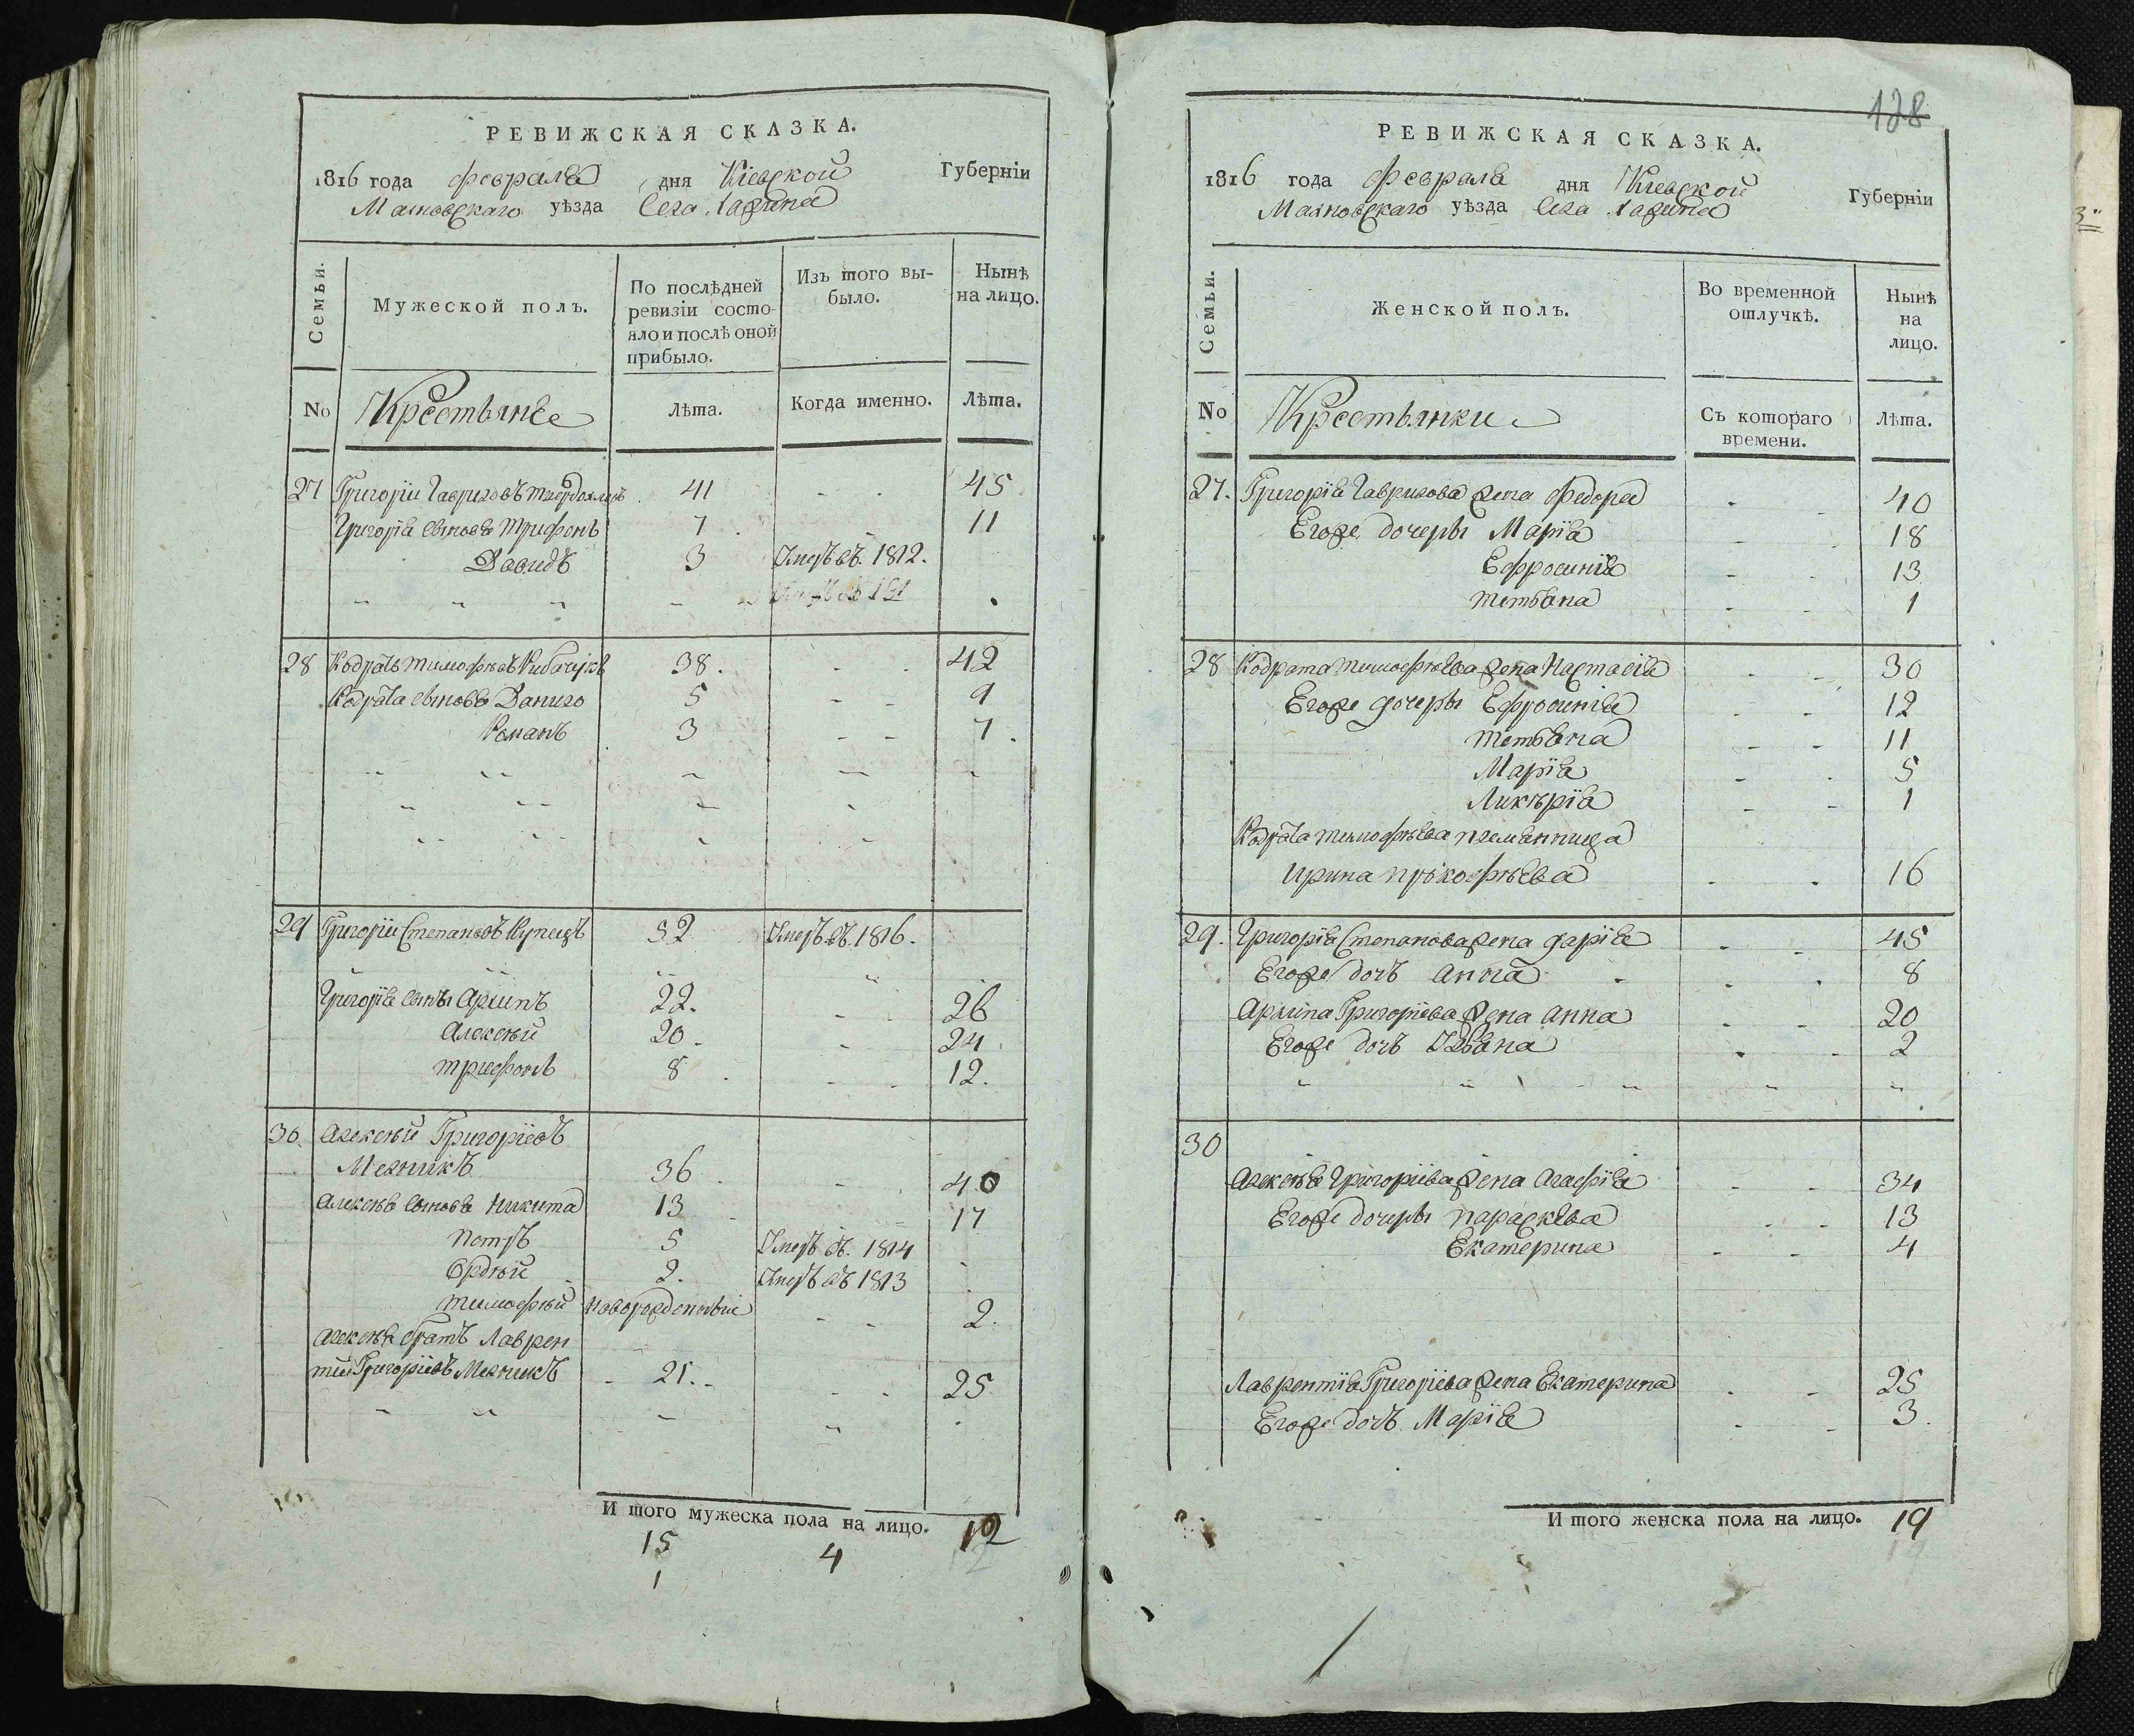 РЕВИЖСКАЯ СКАЗКА.
1816 года февраля дня Кіевской Губерніи
уѣзда Села
Семьи.
Мужеской полъ.
По послѣдней ревизіи состо-
яло и послѣ оной
прибыло.
Изъ того вы-
было.
Нынѣ
на лицо.
No Крестьяне Лѣта. Когда именно. Лѣта.
27 Григорій Гавриловъ 41 45
Григорія сыновья Трифонъ 7 11
Давидъ 3 Умеръ въ. 1812.
28 Кодратъ Тимофѣевъ 38. 42
Кодрата сыновья Данило 5 9
Романъ 3 7.
29 Григорій Степановъ Купецъ 52 Умеръ въ. 1816.
Григорія сыны Архипъ 22. 26
Алексѣй 20 24
Трифонъ 8 12.
30 Алексѣй Григоріевъ
Мелникъ 36 40
Алексѣя сыновья Никита 13 17
Петръ 5 Умеръ въ. 1814
2. Умеръ въ 1813
Тимофѣй новорожденный 2.
Алексѣя братъ Лаврен
тій Григоріевъ Мелникъ 21. 25
И того мужеска пола на лицо. 12
15 4
1
128
РЕВИЖСКАЯ СКАЗКА.
1816 года февраля дня Кіевской Губерніи
уѣзда Села
Семьи.
Женской полъ.
Во временной
отлучкѣ.
Нынѣ
на
лицо.
No Крестьянки Съ котораго
времени. Лѣта.
27. Григорія Гаврилова жена Федора 40
Егоже дочеры Марія 18
Ефросинія 13
Тетьяна 1
28 Кодрата Тимофѣева жена Настасія 30
Егоже дочеры Ефросинія 12
Тетьяна 11
Марія 5
Ликѣрія 1
Кодрата Тимофѣева племянница
Ирина Прокофѣева 16
29. Григорія Степанова жена Дарія 45
Егоже дочъ Анна 8
Архипа Григоріева жена Анна 20
Егоже дочъ Ульяна 2
30
Алексѣя Григоріева жена Агафія 34
Егоже дочеры Параскева 13
Екатерина 4
Лаврентія Григоріева жена Екатерина 25
Егоже дочъ Марія 3
И того женска пола на лицо. 19